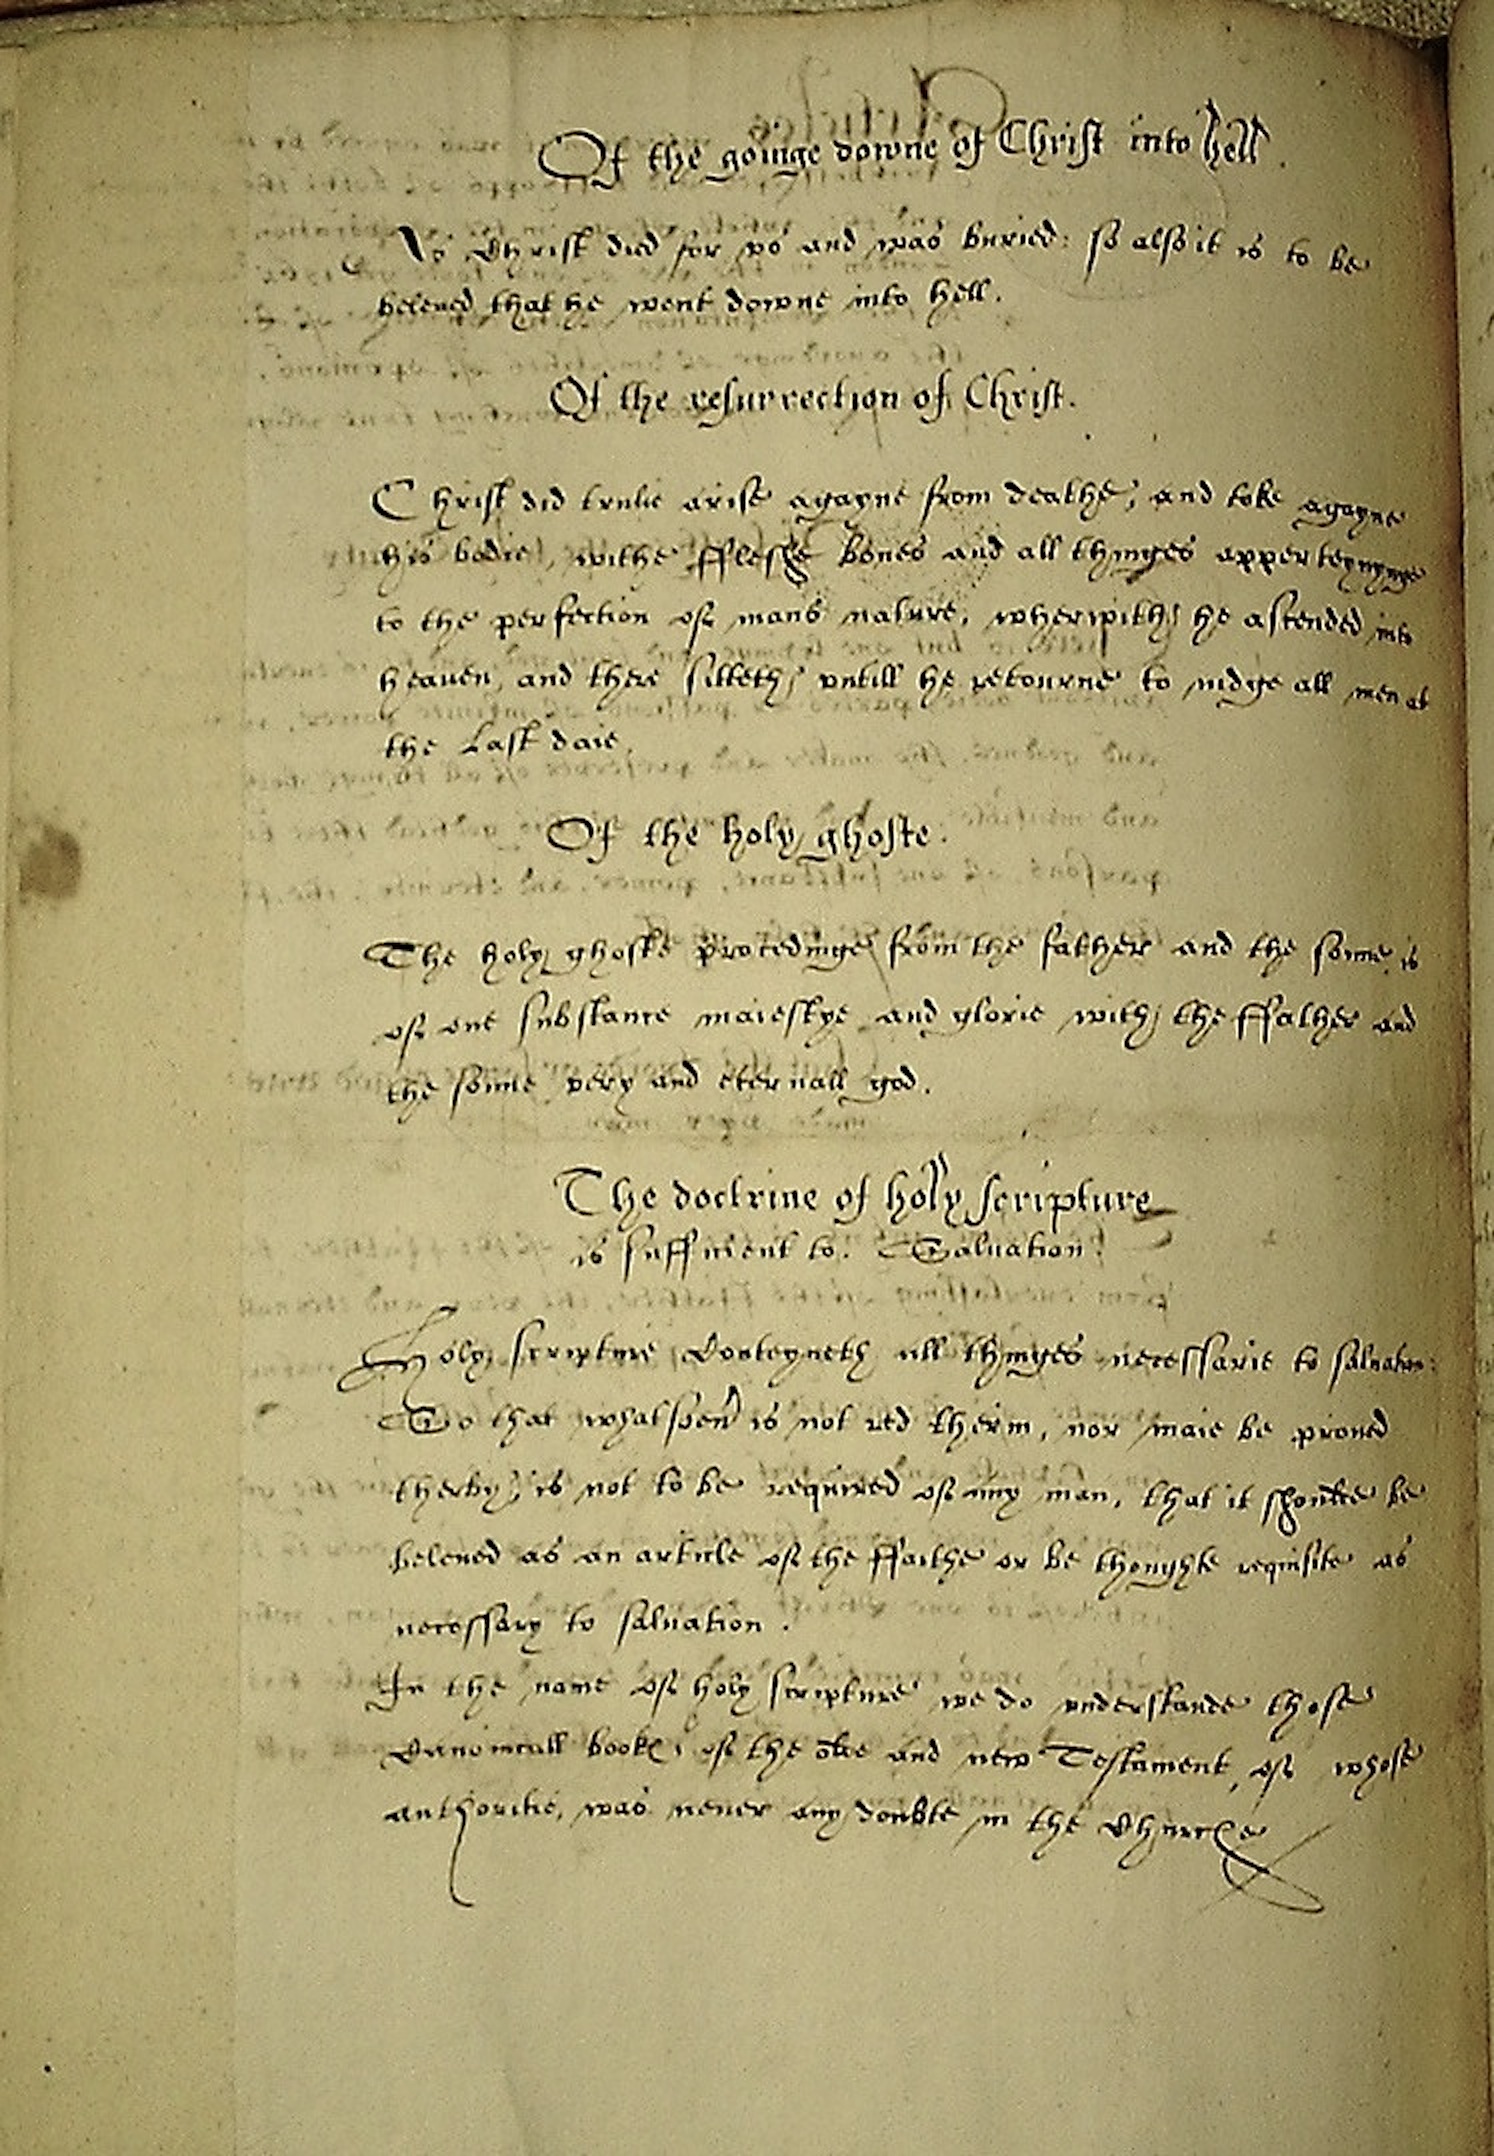 Of the goinge downe of Christ into hell.
As Christ died for vs and was buried: so also it is to be
beleued that he went downe into hell.
Of the resurrection of Christ.
Christ did trulie arise agayne from deathe, and toke agayne
his bodie, withe ffleshe bones and all thinges apperteynynge
to the perfection of mans nature, wherwith he ascended into
heauen, and there sitteth, vntill he retourne to iudge all men at
the Last daie.
Of the holy ghoste.
The holy ghoste procedinge from the father and the sonne, is
of one substance maiestye and glorie with the ffather and
the sonne very and eternall god.
The doctrine of holy scripture
is sufficient to. Saluation.
Holy scripture Conteyneth all thinges necessarie to saluation:
So that whatsoeuer is not red therin, nor maie be proued
therby, is not to be required of any man, that it shoulde be
beleued as an article of the ffaithe or be thoughte requisite as
necessary to saluation.
In the name of holy scripture we do vnderstande those
Canonicall bookes of the olde and new Testament, of whose
authoritie, was neuer any doubte in the Churche